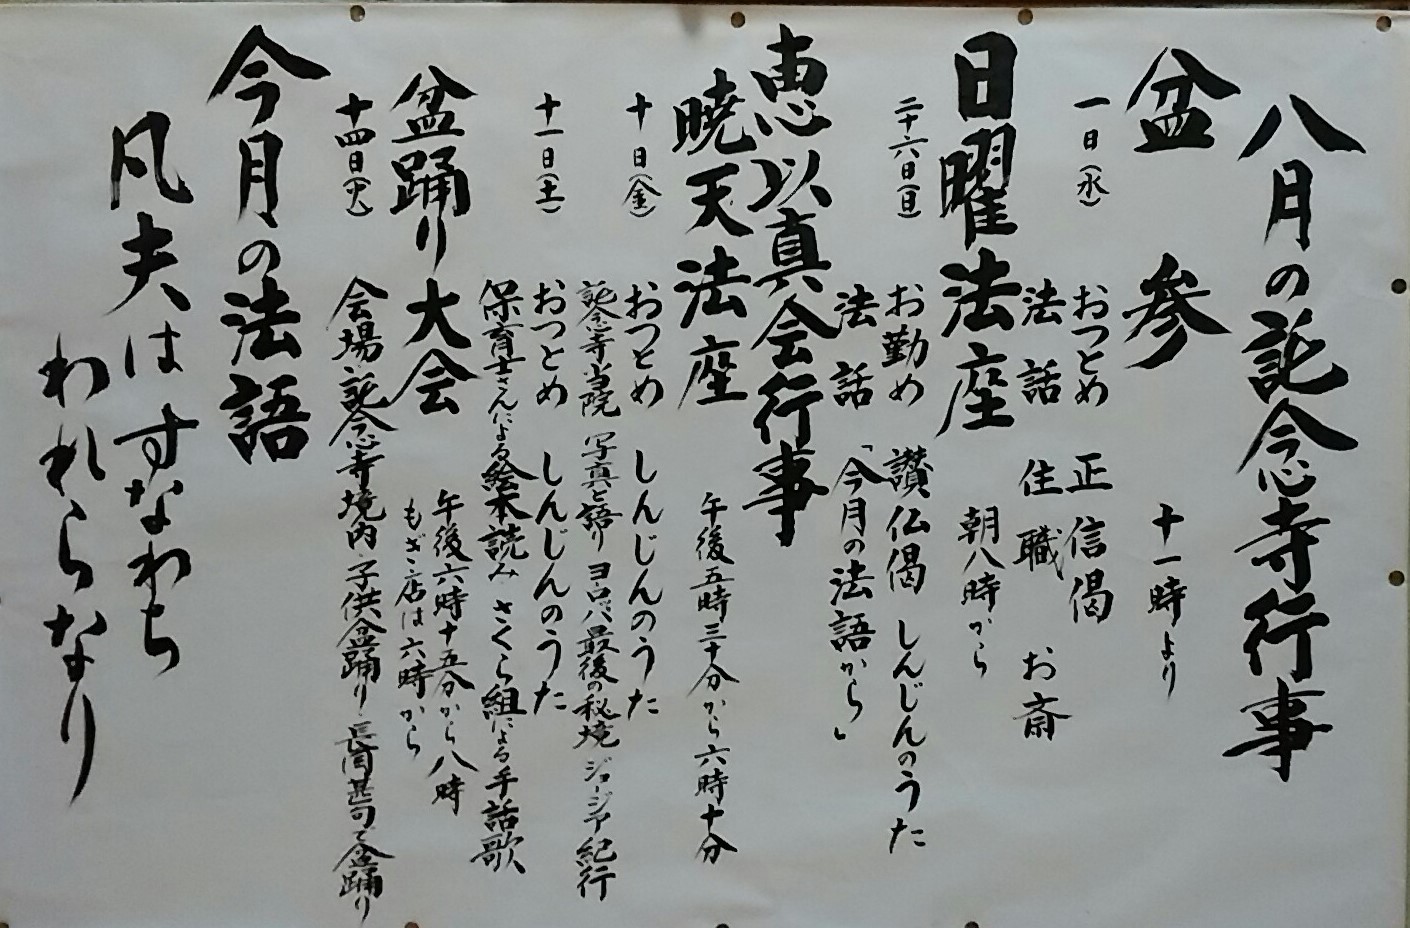 八月の託念寺行事
盆参 十一時より
一日(水) おつとめ 正信偈
法話 住職 お斎
日曜法座 朝八時から
二十六日(日) お勤め 讃仏偈 しんじんのうた
法話 「今月の法語から」
恵以真会行事
暁天法座 午後五時三十分から六時十分
十日(金) おつとめ しんじんのうた
託念寺当院 写真と語り ヨーロッパ最後の秘境 ジョージア紀行
十一日(土) おつとめ しんじんのうた
保育士さんによる絵本読み さくら組による手話歌
盆踊り大会 午後六時十五分から八時
もぎ店は六時から
十四日(火) 会場 託念寺境内 子供盆踊り 長岡甚句で盆踊り
今月の法語
凡夫は すなわち
われらなり